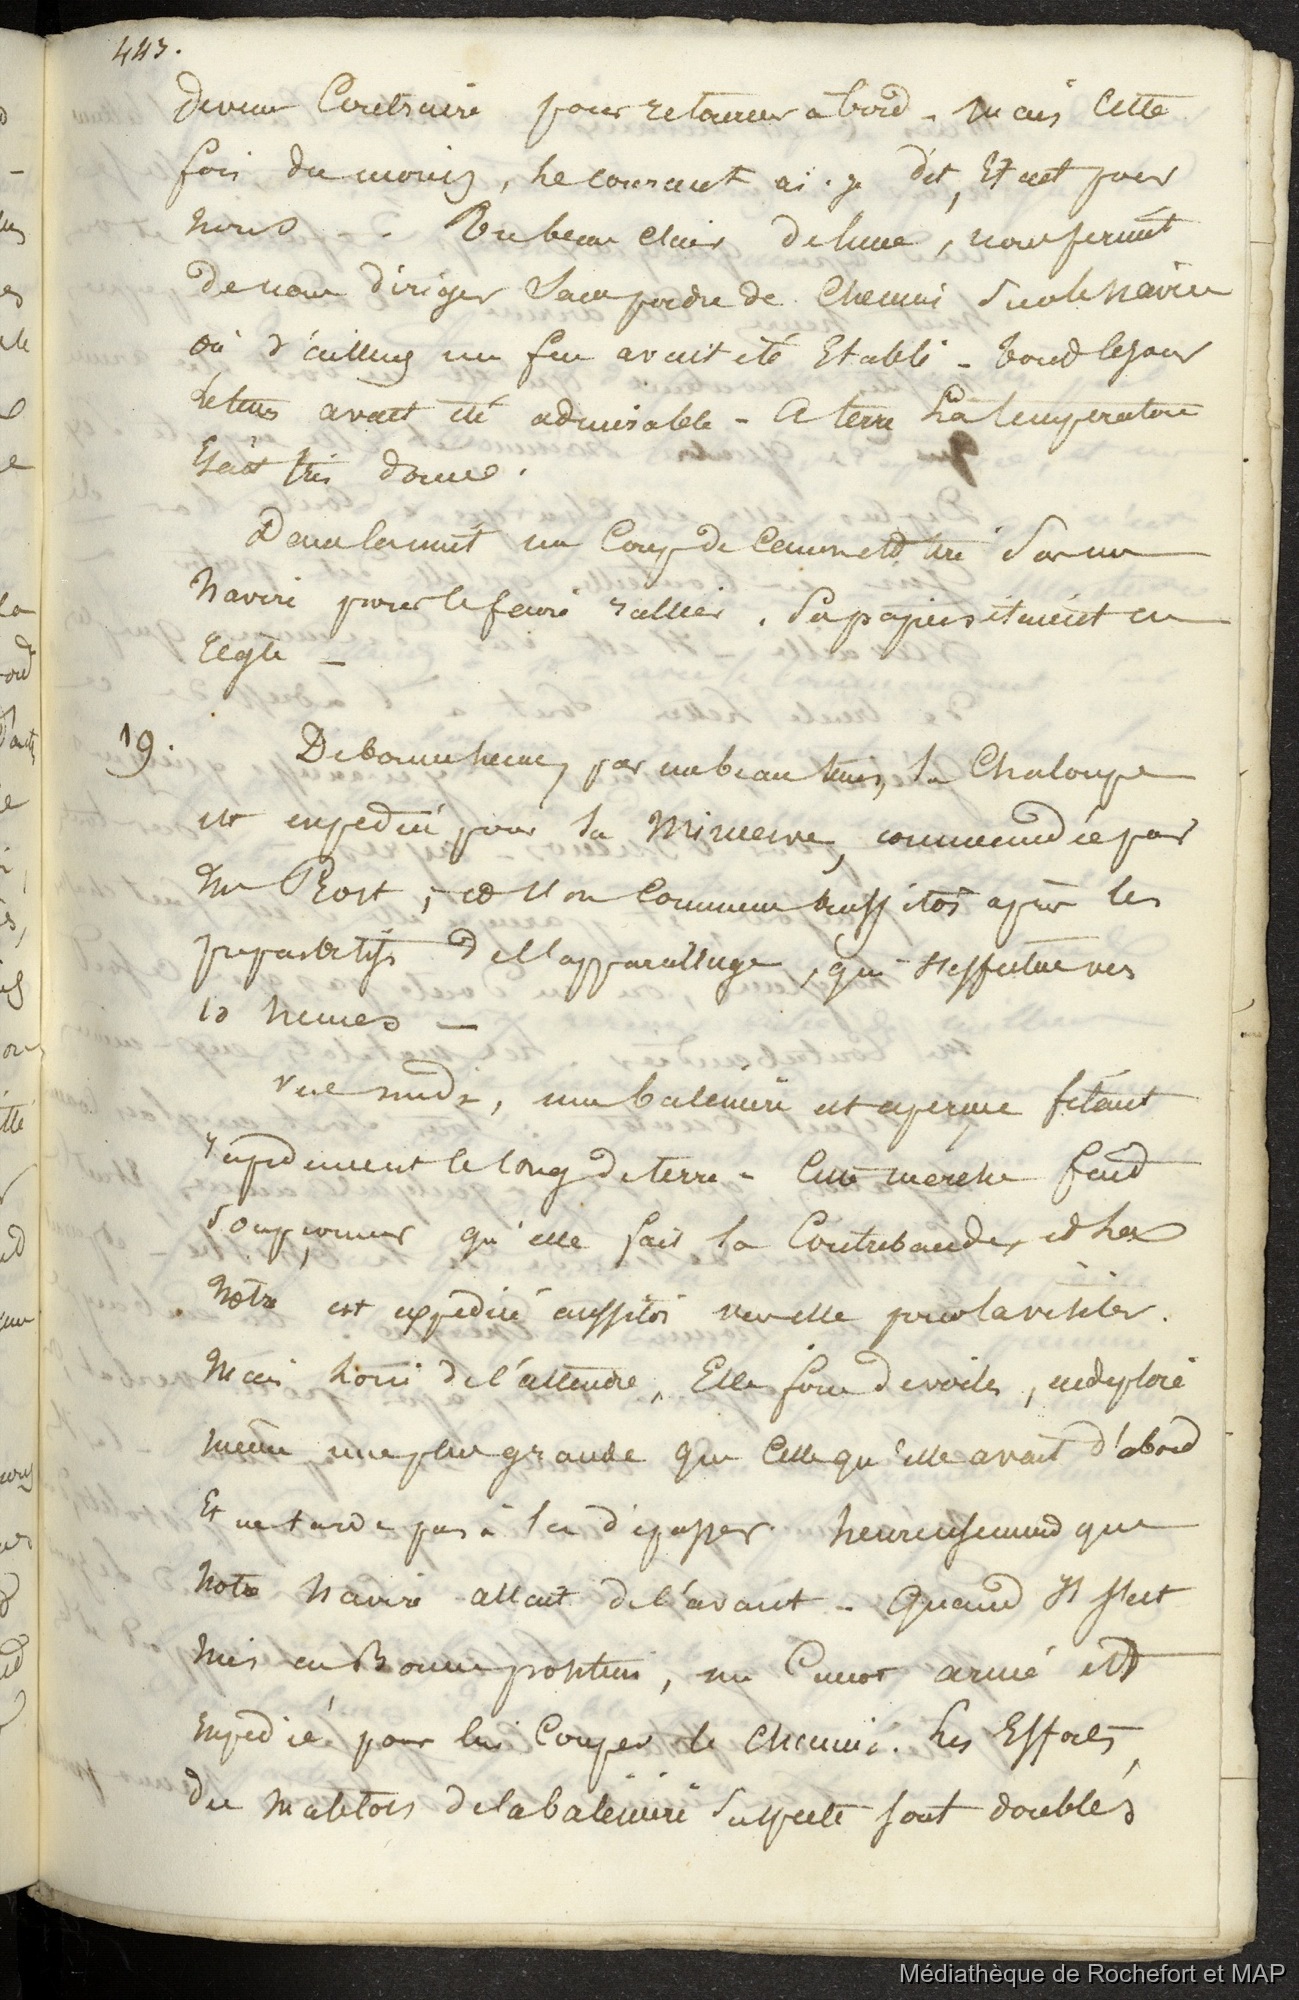 443.
devenu Contraire pour retourner à bord - mais cette
fois du moins, le courant ai-je dit, Etait pour
nous. Un beau clair de lune, nous permit
de nous diriger sans perdre de chemin sur le navire
où d'ailleurs un feu avait été Etabli - tout le jour
le tems avait été admirable - A terre la température
Etait très douce.
Dans la nuit un Coup de Canon est tiré sur un
navire pour le faire rallier. Ses papiers étaient en
règle -
19. De bonne heure, par un beau tems, la Chaloupe
est expédiée pour la Minerve, commandée par
Mr Rost, et l'on commence aussitôt après les
préparatifs de l'appareillage, qui s'effectue vers
10 heures -
vers midi, une baleinière est aperçue filant
rapidement le long de terre - Cette marche fait
soupçonner qu'elle fait la Contrebande, et la
notre est expédiée aussitôt vers elle pour la visiter.
Mais loin de l'attendre, Elle force de voiles, en déploie
même une plus grande que celle qu'elle avait d'abord
Et ne tarde pas à la dépasser. heureusement que
notre navire allait de l'avant - Quand il s'est
mis en Bonne position, un Canot armé est
expédié pour lui Couper le chemin. Les Efforts
des matelots de la baleinière suspecte sont doublés
Médiathèque de Rochefort et MAP